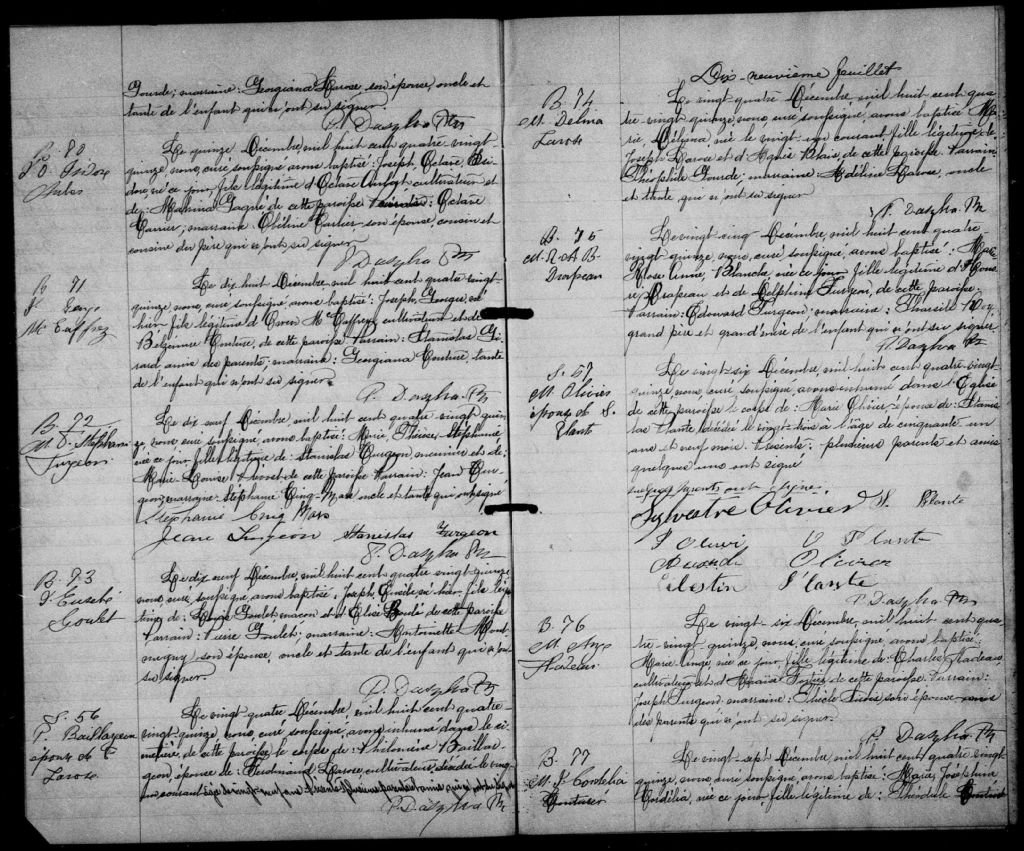 Gourde; marraine: Georgiana Larose, son épouse, oncle et
tante de l'enfant qui n'ont su signer
P. Daszlva Ptre
B. 70
J. O. Isidore
Le quinze Décembre mil huit cent quatre vingt-
quinze, nous, curé soussigné avons baptisé: Joseph, Octave, Isi-
dore, né ce jour, fils légitime d'Octave cultivateur et
de: Gagné de cette paroisse Parrain: Octave
Carrier; marraine: Carrier son épouse, cousin et
cousine du père qui n'ont su signer
P. Daszlva Ptre
B 71
J. Georges
Mc Caffrey
Le dix huit Décembre, mil huit cent quatre vingt-
quinze, nous, curé soussigné avons baptisé: Joseph, Georges, né
hier, fils légitime d'Owen Mc Caffrey, cultivateur et de
Belzémire Couture, de cette paroisse Parrain: Stanislas Gi-
rard amis des parents; marraine: Georgiana Couture, tante
de l'enfant qui n'ont su signer.
P. Daszlva Ptre
B. 72
M. T. Stéphanie
Turgeon
Le dix neuf Décembre, mil huit cent quatre vingt quin-
ze, nous curé soussigné, avons baptisé: Marie, Thérèse, Stéphanie
née ce jour, fille légitime de: Stanislas Turgeon, meunier et de:
Marie Louise Provost de cette paroisse Parrain: Jean Tur-
geon; marraine: Stéphanie Cinq-Mars oncle et tante qui ont signé
Stéphanie Cinq Mars
Jean Turgeon Stanislas Turgeon
P. Daszlva Ptre
B. 73
J. Eusèbe
Goulet
Le dix neuf Décembre, mil huit cent quatre vingt quinze
nous curé soussigné, avons baptisé: Joseph, Eusèbe né hier, fils légi-
time de: Goulet, maçon et d'Elise Boulé de cette paroisse
Parrain: Pierre Goulet; marraine: Antoinette Mont-
migny son épouse, oncle et tante de l'enfant qui n'ont
su signer.
P. Daszlva Ptre
S. 56
P. Baillargeon
épouse de F.
Larose
Le vingt quatre Décembre, mil huit cent quatre-
vingt quinze, nous, curé soussigné, avons inhumé dans le ci-
metière de cette paroisse, le corps de: Philomène Baillar-
geon, épouse de: Ferdinand Larose, cultivateur, décédée le vingt
un courant
P. Daszlva Ptre
Dix-neuvième feuillet
B 74
M. Delma
Larose
Le vingt quatre Décembre, mil huit cent qua-
tre-vingt quinze, nous, curé soussigné, avons baptisé: Ma-
rie née le vingt un courant fille légitime de
Joseph Larose et d'Agnès Blais, de cette paroisse. Parrain:
Théophile Gourde; marraine: Adéline Larose, oncle
et tante, qui n'ont su signer
P. Daszlva Ptre
B. 75
M. R. A. B.
Drapeau
Le vingt-cinq Décembre, mil huit cent quatre
vingt quinze, nous, curé soussigné, avons baptisé: Marie,
Rose Anne, Blanche, née ce jour fille légitime
Drapeau et de Delphine Turgeon, de cette paroisse.
Parrain: Edouard Turgeon; marraine: Tharsile Roy,
grand père et grand'mère de l'enfant qui n'ont su signer
P. Daszlva Ptre
S. 57
M. Olivier
épouse de S.
Plante
Le vingt-six Décembre, mil huit cent quatre-vingt-
quinze nous, curé soussigné avons inhumé dans l'Eglise
de cette paroisse le corps de: Marie Olivier épouse de: Stanis-
las Plante décédée le vingt-trois à l'âge de cinquante un
ans et neuf mois. Présents: plusieurs parents et amis
quelques uns ont signé
Sylvestre Olivier J St. Plante
J Olivier O Plante
Olivier
Celestin Plante
P. Daszlva Ptre
B. 76
M. Ange
Nadeau
Le vingt-six Décembre, mil huit cent qua-
tre-vingt-quinze, nous, curé soussigné, avons baptisé:
Marie Ange, née ce jour, fille légitime de: Charles Nadeau
cultivateur et d' de cette paroisse. Parrain:
Joseph Turgeon; marraine: son épouse amis
des parents qui n'ont su signer.
P. Daszlva Ptre
B. 77
M. J. Cordelia
Couture
Le vingt-sept Décembre, mil huit cent quatre vingt
quinze, nous curé soussigné, avons baptisé: Marie, Josephine
Cordélia, née ce jour, fille légitime de: Théodule Couture